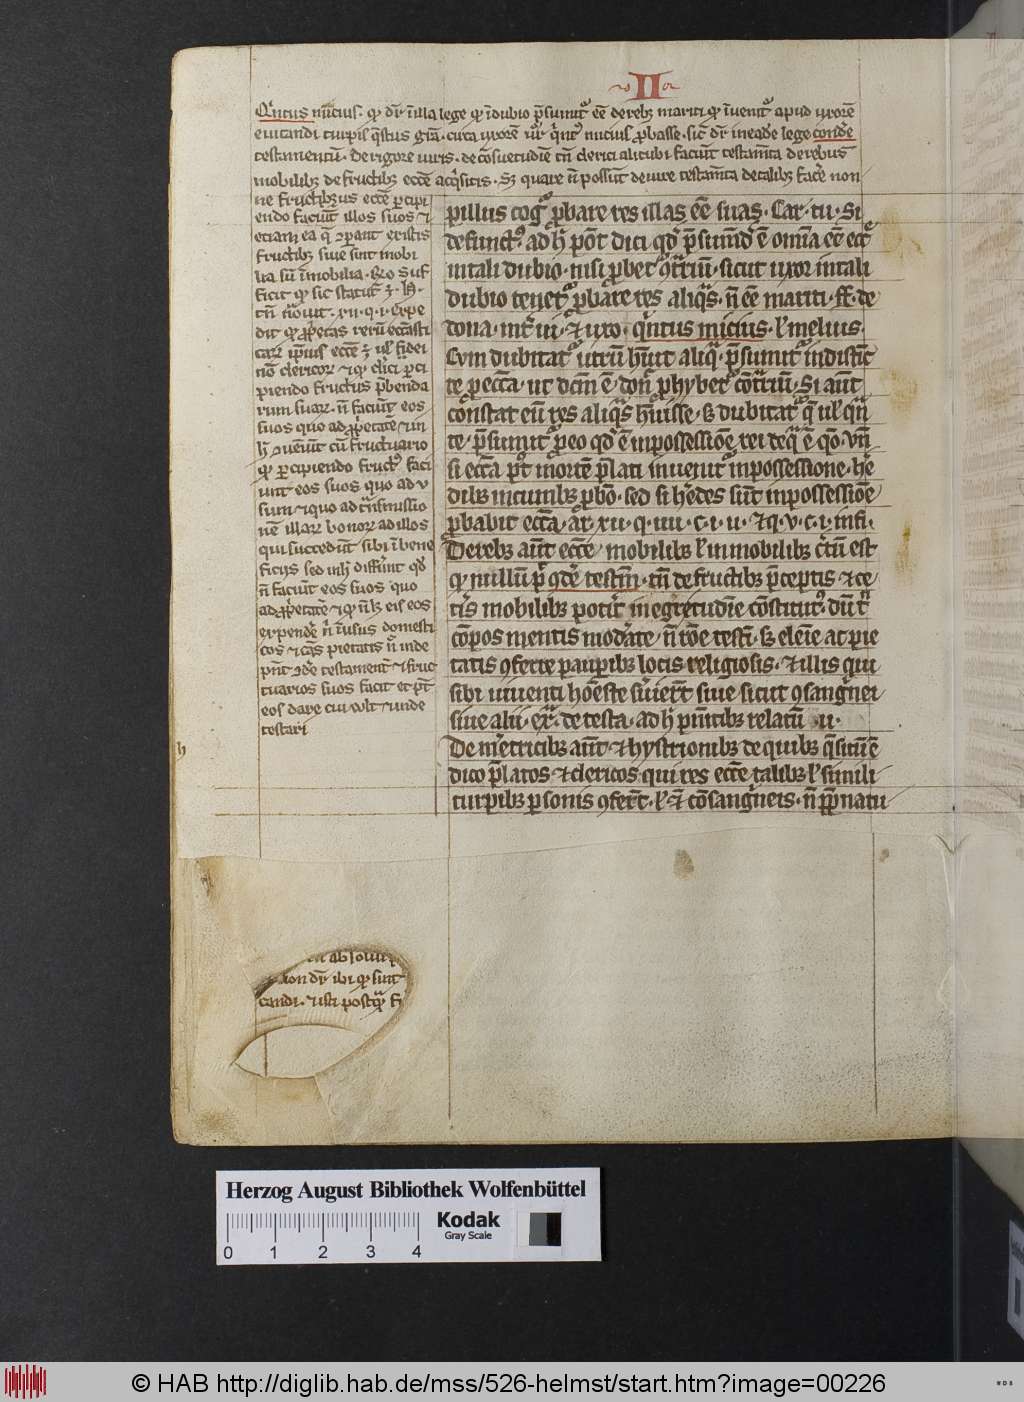 II
Qintus mucius. qr dr illa lege qr idubio psumit ee de reb mariti qr iuenit apud uxore
euitandi turpis qstus gra. circa uxore ur qint mucius pbasse. sic dr in eade lege conde
testamentum. de rigore iuris. de cosuetudie tn clerici alicubi faciut testamta de rebus
mobilib de fructib ecce acqsitis. Sz quare n possut de iure testamta de talib face non
ne fructibus ecce pcipi
endo faciut illos suos et
etiam ea q opant existis
fructib siue sint mobi
lia su imobilia. Ro Suf
ficit qr sic statut
dit qr ppetas reru eccasti
car ipius ecce ul fidei
no clericor et qr clici pci
piendo fructus pbenda
rum suar. n faciut eos
suos quo ad ppetate et in
h ueniut cu fructuario
qr pcipiendo fruct faci
unt eos suos quo ad v
sum et quo ad tnsmissio
ne illar bonor ad illos
qui succedut sibi i bene
ficiis sed in h differut qd
n faciut eos suos quo
ad ppetate et qr n lz eis eos
expende ni i usus domesti
cos et cas pietatis n inde
pnt ode testament et fruc
tuarios suos facit et pt
eos dare cui volt et inde
testari
pillus cog pbare res illas ee suas. Car. tu. Si
defunct. ad h pot dici qd psumd e omia ee ecce
in tali dubio. nisi pbet otrium. sicut uxor in tali
dubio tenet pbare res aliqs. n ee mariti. ff. de
dona. int ui. et uxo. qintus mucius. l melius.
Cum dubitat utru huit aliq psumit indistict
te p ecca. ut dcm e. don phybet cotriu. Si aut
constat eu res aliqs huisse. sz dubitat q ul qn
te. psumit p eo qd e in possessioe rei de q e qo. Vn
si ecca pt morte plati inuenit in possessione. he
dib incumb pbo. sed si hedes sut in possessioe
pbabit ecca. ar. xii. q. iiii. c. i. ii. et q. v. c. i. infi.
De reb aut ecce mobilib l inmobilib certu est
qr nullu p qde testm. tn de fructib pceptis et ce
tis mobilib potit in egretudie constitut. du t
copos mentis modate n roe testi. sz eleie ac pie
tatis oferre paupib locis religiosis. et illis qui
sibi uiuenti hoeste suiert siue sicut osanginei
siue alii. ex. de testa. ad h psentib relatum ii.
De metricib aut et hystrionib de quib qsitu e
dico platos et clericos. qui res ecce talib l simili
turpib psonis oferut. l et consangineis. n ppnatu
h
ab solui
non dr ibi qr sunt
candi. et isti postq
Herzog August Bibliothek Wolfenbüttel
Kodak
Gray Scale
0 1 2 3 4
© HAB http://diglib.hab.de/mss/526-helmst/start.htm?image=00226